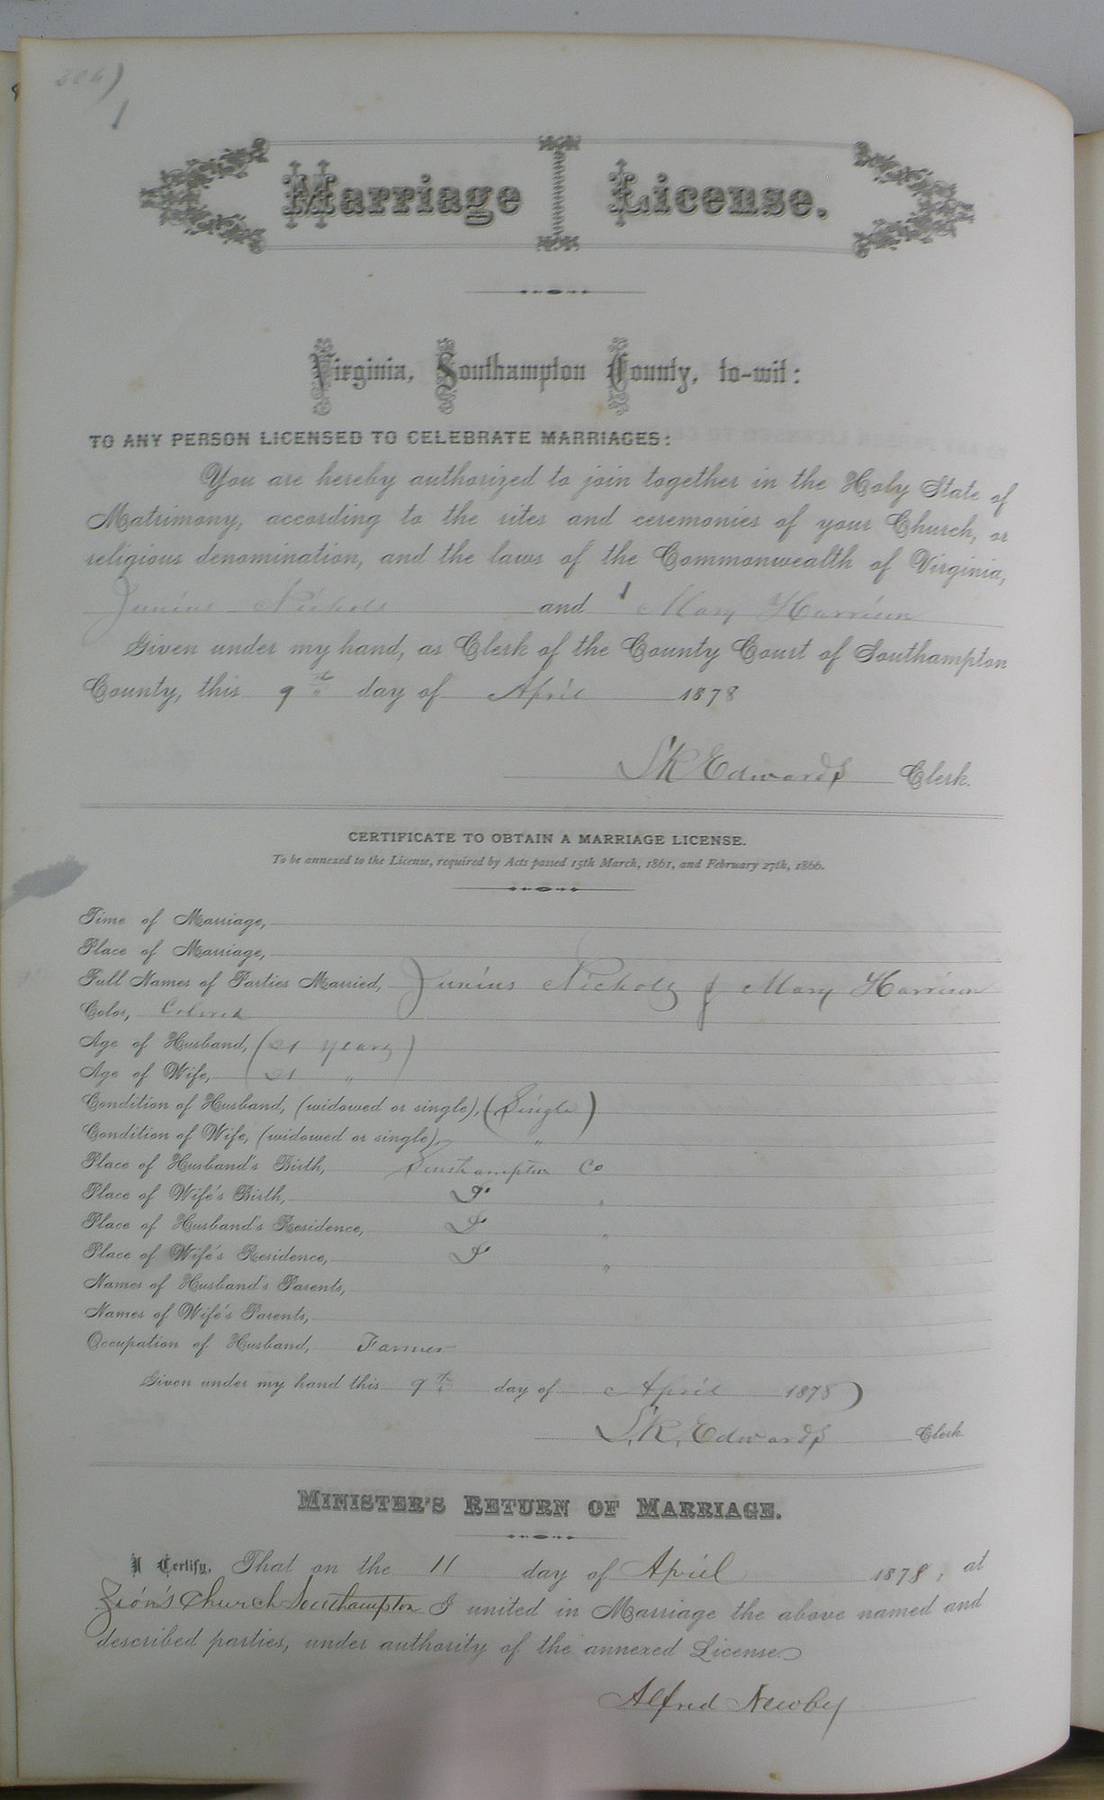 206)
Marriage License.
Virginia, Southampton County, to-wit:
TO ANY PERSON LICENSED TO CELEBRATE MARRIAGES:
You are hereby authorized to join together in the Holy State of
Matrimony, according to the rites and ceremonies of your Church, or
religious denomination, and the laws of the Commonwealth of Virginia,
Junius Nichols and Mary Harrison
Given under my hand, as Clerk of the County Court of Southampton
County, this 9th day of April 1878
S K Edwards Clerk.
CERTIFICATE TO OBTAIN A MARRIAGE LICENSE.
To be annexed to the License, required by Acts passed 15th March, 1861, and February 27th, 1866.
Time of Marriage,
Place of Marriage,
Full Names of Parties Married, Junius Nichols & Mary Harrison
Color, Colored
Age of Husband, (21 years)
Age of Wife, (21 ")
Condition of Husband, (widowed or single), (Single)
Condition of Wife, (widowed or single), "
Place of Husband's Birth, Southampton Co
Place of Wife's Birth, Do "
Place of Husband's Residence, Do "
Place of Wife's Residence, Do "
Names of Husband's Parents,
Names of Wife's Parents,
Occupation of Husband, Farmer
Given under my hand this 9th day of April 1878)
S. K. Edwards Clerk
MINISTER'S RETURN OF MARRIAGE.
I Certify, That on the 11 day of April 1878, at
Zion's Church Southampton I united in Marriage the above named and
described parties, under authority of the annexed License.
Alfred Newby